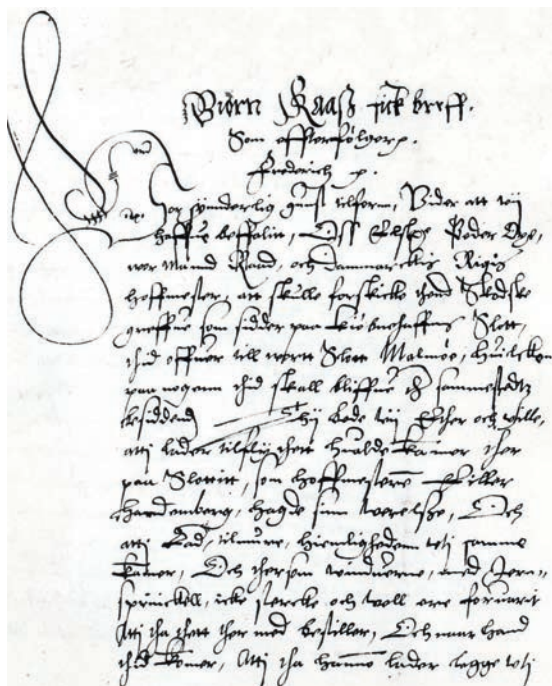 Biørn Kaaß fick breff.
Som effterfølger.
Frederich
Vor synderlig gunst tilforn, Vider att wij
haffue beffalit, Oss Elskg Peder Oxe,
wor Mannd Raad, och Danmarckis Rigis
hoffmester, att skulle forskicke thend Skodske
greffue som sidder paa Kiøbnehaffns Slott,
thid offuer till wortt Slott Malmøe, huilcken
paa nogenn thid skall bliffue sammestedtz
besiddend Thij bede wij Ether och wille,
atti lader tilflij thett huelde Kamer ther
paa Slottitt, som hoffmestere Eyller
hardennberg, hagde sinn werelsse, Och
atti lader, tilmure, hiemlighedenn wtj samme
Kamer, Och thersom winduerne, med Jern
sprinckell, icke stercke och well ere foruarit
Atti tha thett ther med bestiller, Och naar hand
thid komer, Atti tha hannom lader legge wtj